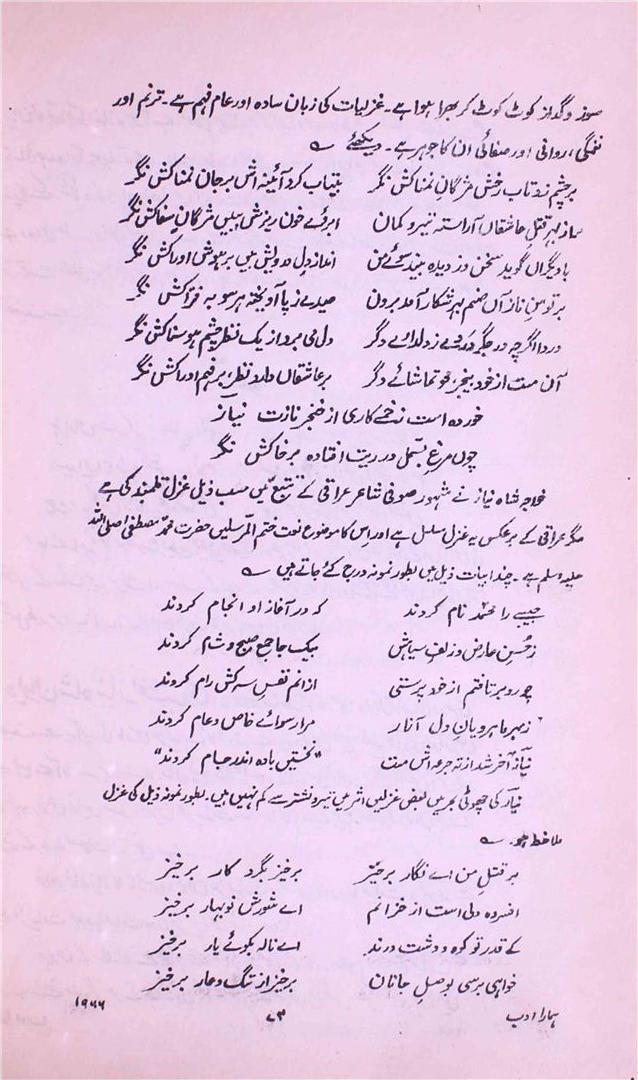 سوز و گداز کوٹ کوٹ کر بھرا ہوا ہے۔ غزلیات کی زبان سادہ اور عام فہم ہے۔ ترنم اور
نغمگی، روانی اور صفائی ان کا جوہر ہے۔ دیکھئے ؎
برچشم زد تاب رخش مژگانِ نمناکش نگر بیتاب کرد آئینہ اش برجان نمناکش نگر
ساز بہر قتلِ عاشقاں آراستہ تیر و کمان ابروئے خون ریزش ببیں مژگانِ سفاکش نگر
بادیگراں گوید سخن وز دیدہ بیند سوئے من انداز دل بین بر ہوش و ادراکش نگر
بر توسنِ ناز آں صنم بہر شکار آمد برون صیدے ز پا آویختہ ہر سو بہ فتراکش نگر
دردا اگرچہ در جگر دردے ز دلدارے دگر دل می برد از یک نظر چشم ہوسناکش نگر
آن مست از خود بیخبر محو تماشائے دگر بر عاشقاں دارد نظر، بر فہم ادراکش نگر
خوردہ است زخمے کاری از خنجر نازت نیاز
چوں مرغِ بسمل در رہت افتادہ بر خاکش نگر
خواجہ شاہ نیاز نے مشہور صوفی شاعر عراقی کے تتبع میں حسب ذیل غزل قلمبند کی ہے
مگر عراقی کے برعکس یہ غزل مسلسل ہے اور اس کا موضوع نعت ختم المرسلیں حضرت محمد مصطفٰی صلی اللہ
علیہ وسلم ہے۔ چند ابیات ذیل میں بطور نمونہ درج کئے جاتے ہیں ؎
حبیبے را محمد نام کردند کہ در آغاز او انجام کردند
ز حسنِ عارض و زلفِ سیاہش بیک جا جمع صبح و شام کردند
چو رو برتافتم از خود پرستی ازانم نفسِ سرکش رام کردند
ز بہرِ ماہرویانِ دل آزار مرا رسوائے خاص و عام کردند
نیاز آخر شد از تہ جرعہ اش مست "نخستیں بادہ اندر جام کردند"
نیاز کی چھوٹی بحر میں بعض غزلیں اثر میں تیر و نشتر سے کم نہیں ہیں۔ بطور نمونہ ذیل کی غزل
ملاحظہ ہو۔ ؎
بر قتلِ من اے نگار برخیز برخیز بگرد کار برخیز
افسردہ دلی است از خزانم اے شورش نوبہار برخیز
کے قدر تو کوہ و دشت درند اے نالہ بکوئے یار برخیز
خواہی برسی بوصلِ جانان برخیز از ننگ و عار برخیز
ہمارا ادب ۷۳ ۱۹۶۶